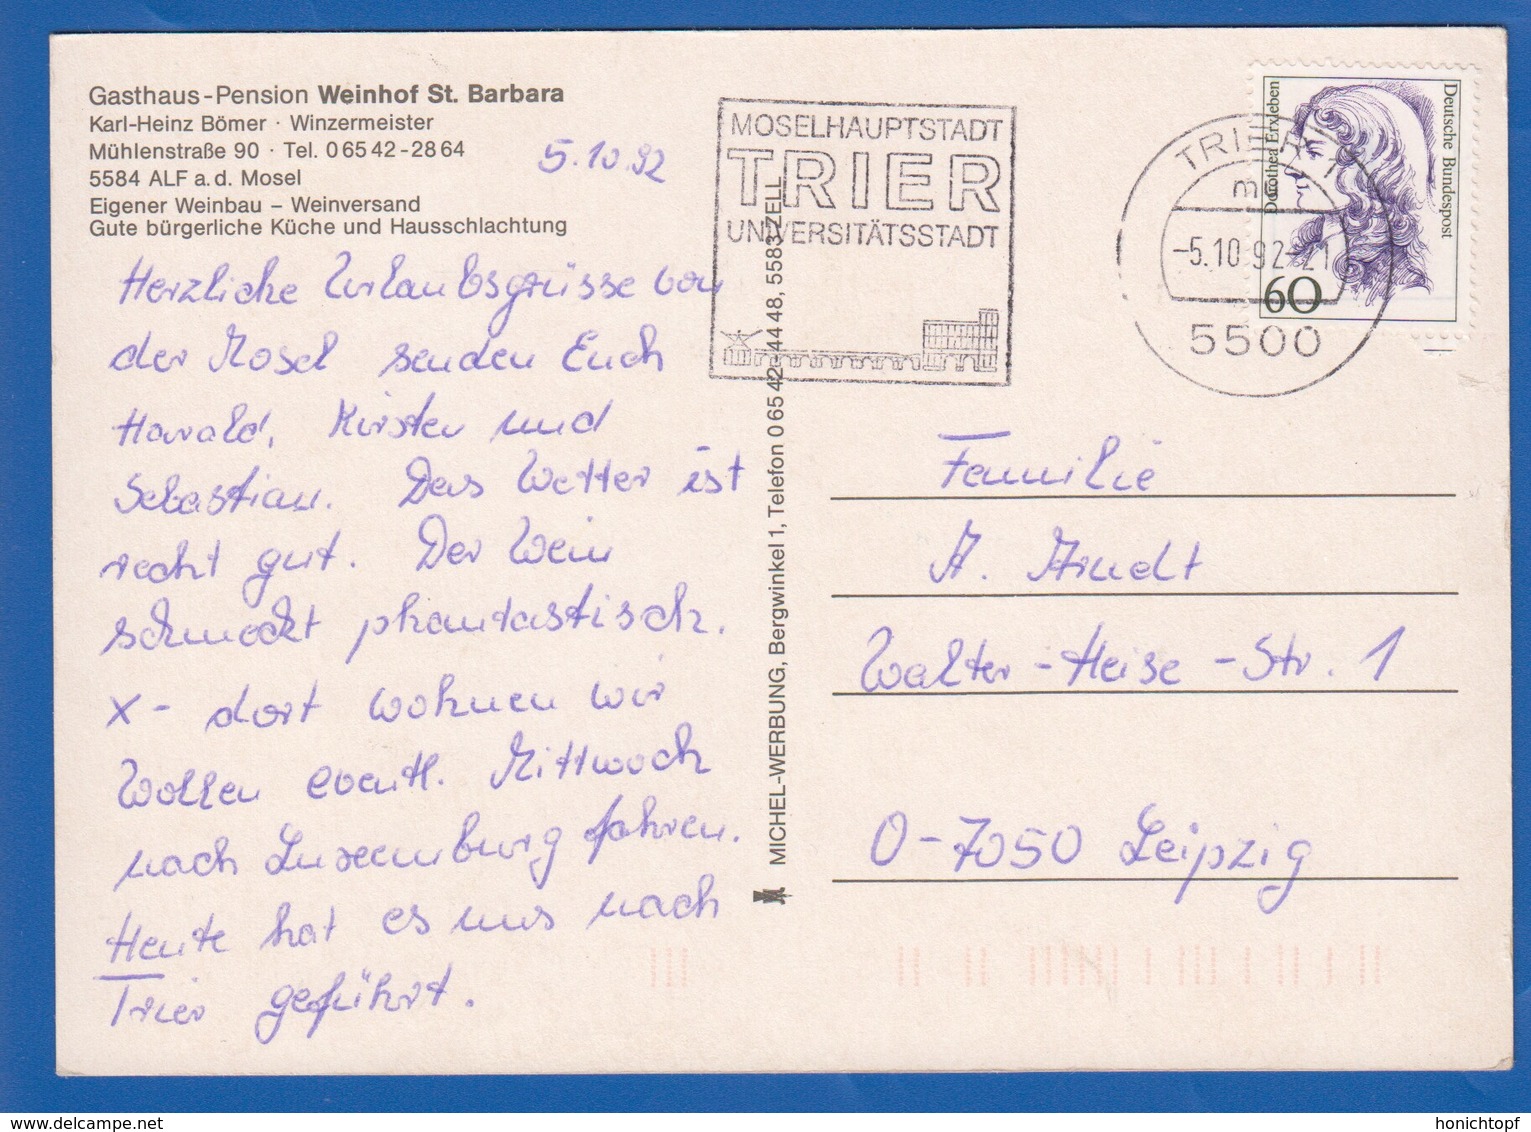 Gasthaus-Pension Weinhof St. Barbara
Karl-Heinz Bömer · Winzermeister
Mühlenstraße 90 · Tel. 0 65 42 - 28 64
5584 ALF a. d. Mosel
Eigener Weinbau – Weinversand
Gute bürgerliche Küche und Hausschlachtung
5.10.92
Herzliche Urlaubsgrüsse von
der Mosel senden Euch
Harald, Kirsten und
Sebastian. Das Wetter ist
recht gut. Der Wein
schmeckt phantastisch.
x- dort wohnen wir
Wollen eventl. Mittwoch
nach Luxemburg fahren.
Heute hat es uns nach
Trier geführt.
MICHEL-WERBUNG, Bergwinkel 1, Telefon 0 65 42 - 44 48, 5583 ZELL
MOSELHAUPTSTADT
TRIER
UNIVERSITÄTSSTADT
TRIER 1
-5.10.92-21
5500
Deutsche Bundespost
Dorothea Erxleben
60
Familie
A. Arndt
Walter-Heise-Str. 1
O-7050 Leipzig
www.delcampe.net
honichtopf